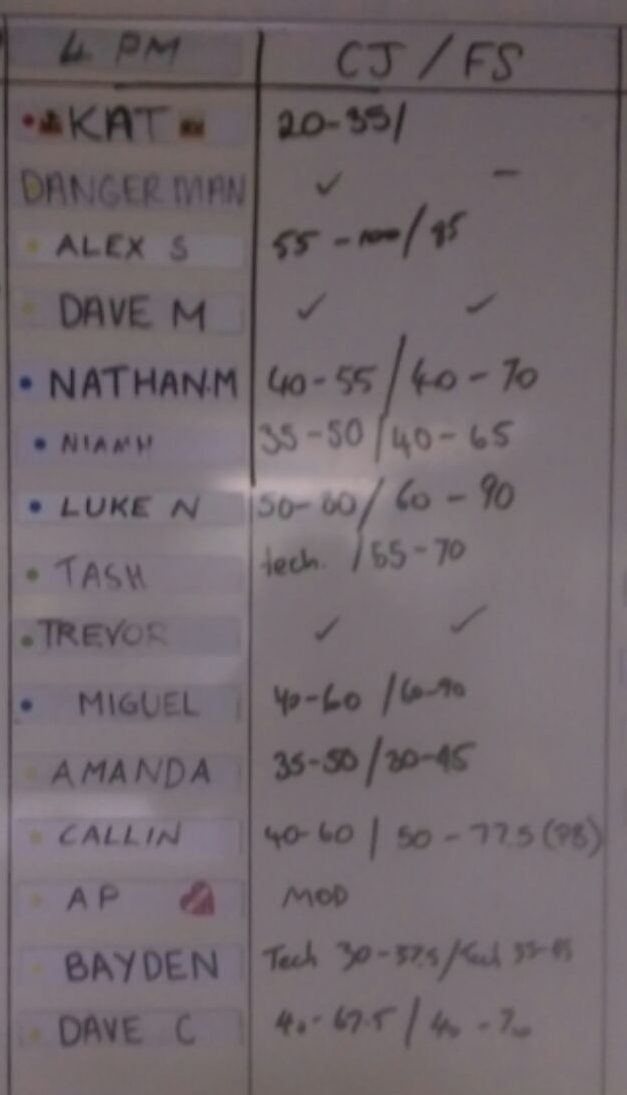 4 PM CJ / FS
KAT 20-35/
DANGERMAN ✓ -
ALEX S 55 - / 85
DAVE M ✓ ✓
NATHAN.M 40-55 / 40-70
NIAMH 35-50 / 40-65
LUKE N 50-60 / 60-90
TASH tech. / 55-70
TREVOR ✓ ✓
MIGUEL 40-60 / 60-90
AMANDA 35-50 / 30-45
CALLIN 40-60 / 50-77.5 (PB)
AP MOD
BAYDEN Tech 30-37.5 / Tech 35-45
DAVE C 40-67.5 / 40-70